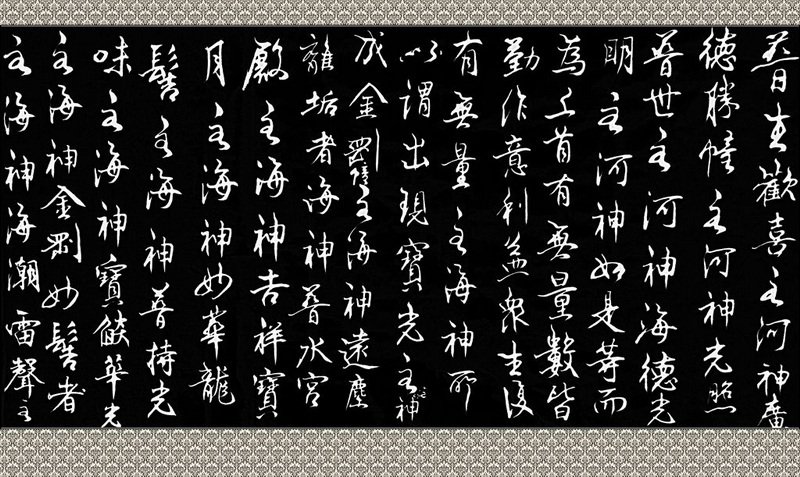 普生歡喜主河神廣
德勝幢主河神光照
普世主河神海德光
明主河神如是等而
為上首有無量數皆
勤作意利益眾生復
有無量主海神所
以謂出現寶光主海神
成金剛幢主海神遠塵
離垢者海神普水宮
殿主海神吉祥寶
月主海神妙華龍
髻主海神普持光
味主海神寶燄華光
主海神金剛妙髻者
主海神海潮雷聲主